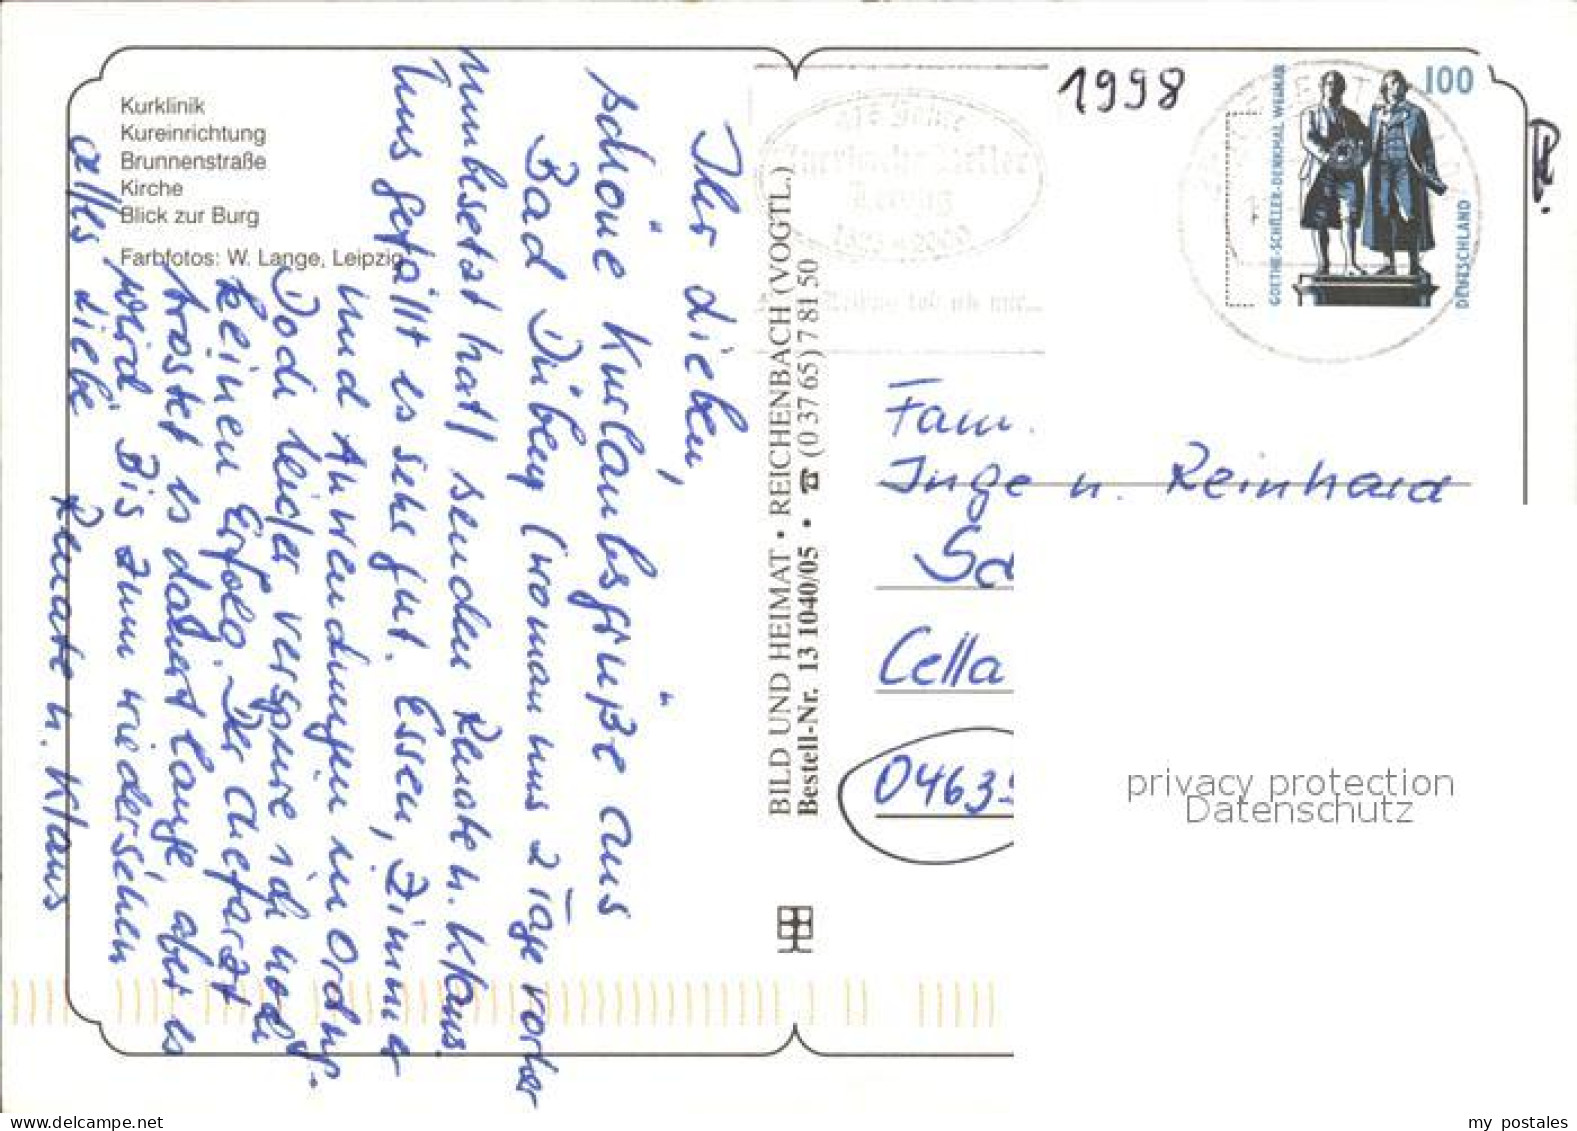 Kurklinik
Kureinrichtung
Brunnenstraße
Kirche
Blick zur Burg
Farbfotos: W. Lange, Leipzig
Ihr Lieben,
schöne Kurlaubsgrüße aus
Bad Düben (wo man uns 2 Tage vorher
umbesetzt hat) senden Renate u. Klaus.
Uns gefällt es sehr gut. Essen, Zimmer
und Anwendungen in Ordng.
Dodi leider verspüre ich noch
keinen Erfolg. Der Chefarzt
tröstet es dauert lange, aber es
wird. Bis zum wiedersehen
alles Liebe
Renate u. Klaus
BILD UND HEIMAT • REICHENBACH (VOGTL.)
Bestell-Nr. 13 1040/05 • ☎ (0 37 65) 7 81 50
1998
100
GOETHE-SCHILLER-DENKMAL WEIMAR
DEUTSCHLAND
Fam.
Inge u. Reinhard
Sc
Cella
0463
privacy protection
Datenschutz
my postales